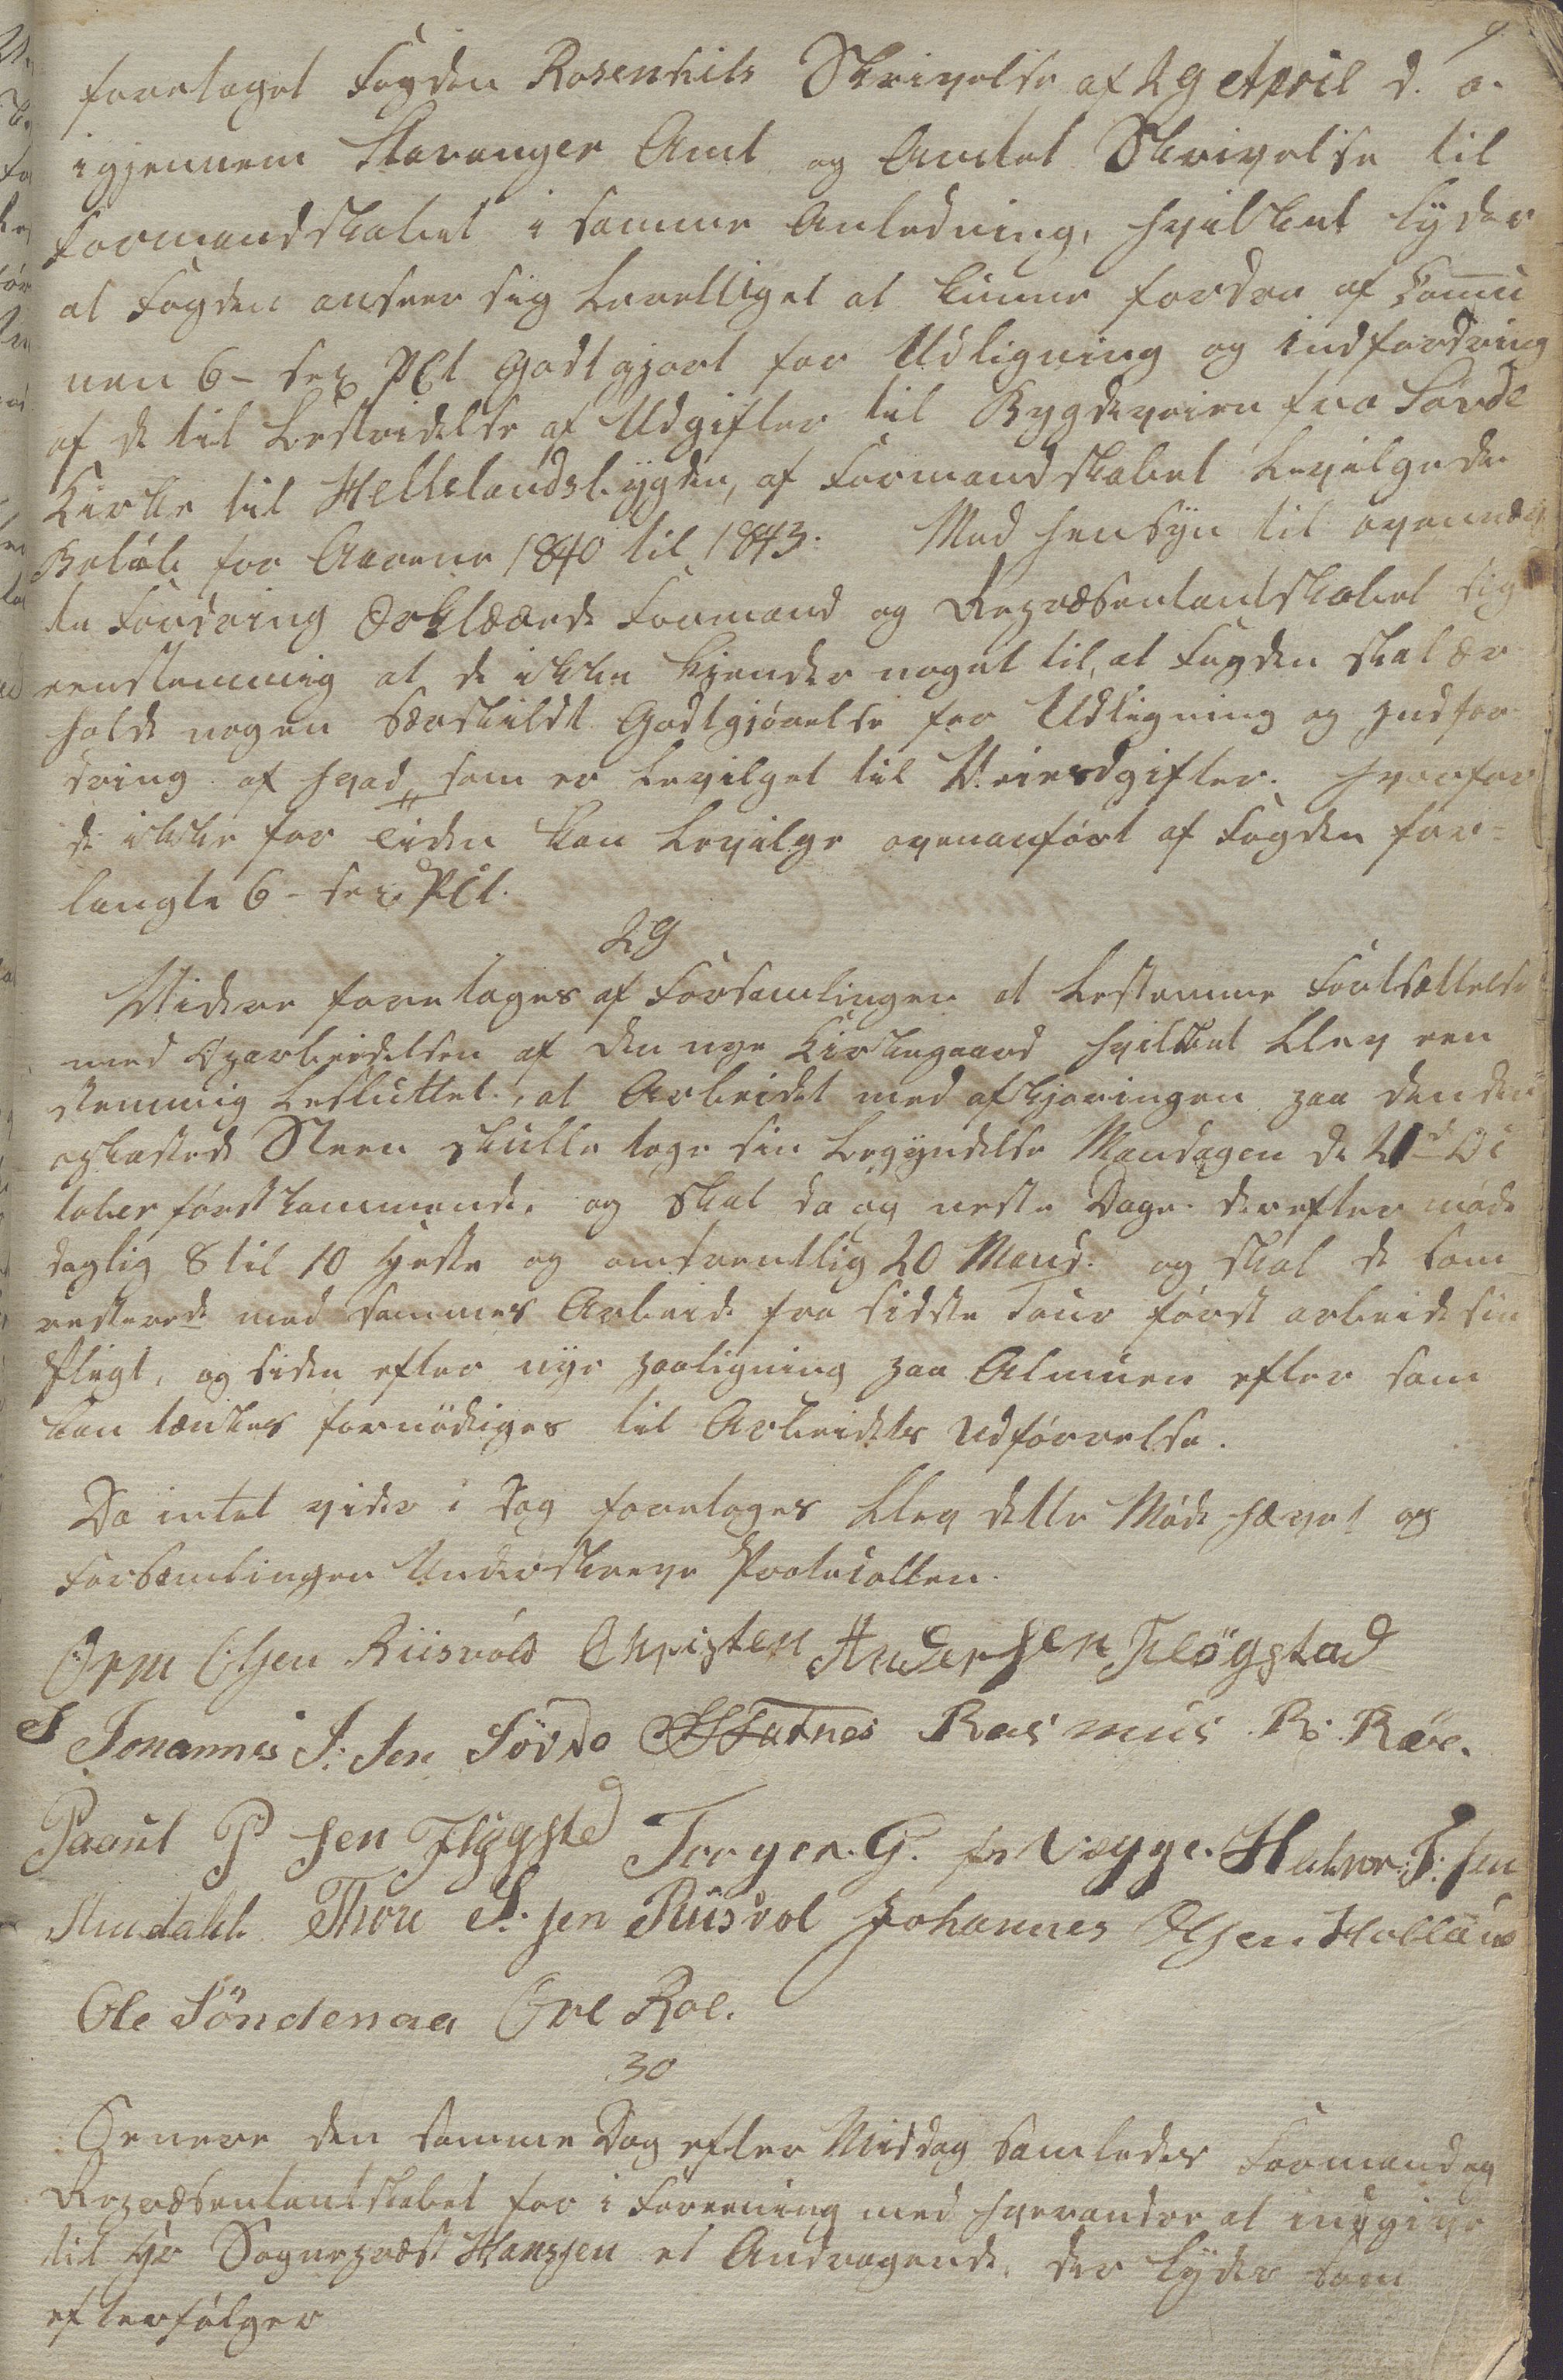 9
foretaget Fogden Rosenkils Skrivelse af 29 April d. a.
igjennem Stavanger Amt og Amtets Skrivelse til
Formandskabet i samme Anledning, hvilket lyder
at Fogden anseer sig berettiget at kunne fordre af Commu
nen 6 – sex PCt godtgjort for Udligning og Indfordring
af de til Bestridelse af Udgifter til Bygdeveien fra Søvde
Kirke til Hellelandsbygden, af Formandskabet bevilgede
Beløb for Aarene 1840 til 1843. Med Hensyn til ovenmeld
te Fordring Erklærede Formand og Repræsentantskabet sig
eenstemmig at de ikke kjender noget til, at Fogden skal er
holde nogen Særskildt Godtgjørelse for Udligning og Indfor
dring af hvad som er bevilget til Veiudgifter. hvorfor
de ikke for Tiden kan bevilge ovenanført af Fogden for=
langte 6 – sex PCt.
29
Videre foretages af Forsamlingen at bestemme Fortsættelse
med Oparbeidelsen af den nye Kirkegaard hvilket blev een
stemmig besluttet, at Arbeidet med afkjøringen paa den den
opkastede Steen skulle tage sin begyndelse Mandagen de 21de Oc
tober førstkommende, og skal da og neste Dage derefter møde
daglig 8 til 10 Heste og omtrentlig 20 Mand. og skal de som
resterede med sammes Arbeide fra sidste Tour først arbeide sin
Pligt, og siden efter nye paaligning paa Almuen efter som
kan tænkes fornødiges til Arbeidets Udførrelse.
Da intet vider i Dag foretages blev dette Møde hævet og
Forsamlingen Underskreve Protocollen.
Orm Olsen Riisvold Christen Andersen Fløgstad
Johannes J: sen Søvde Rasmus R. Røe.
Paaul P sen Fløgsted Torger. G. sn Vægge. Halvor: T: sen
Thore S. sen Riisvol Johannes Olsen Holland
Ole Söndenaa Ole Roe.
30
Senere den samme Dag efter Middag samledes Formand og
Repræsentantskabet for i Foreening med hverandre at indgive
til Hr Sognepræst Hansen et Andragende, der lyder som
efterfølger